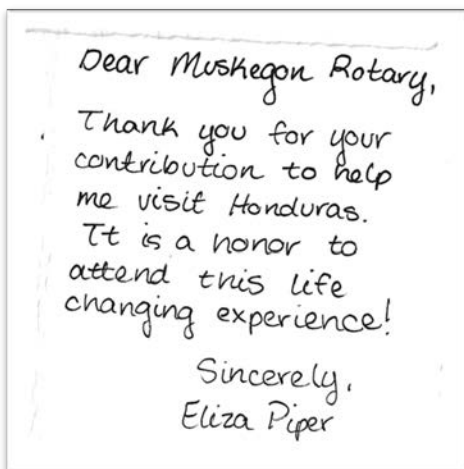 Dear Muskegon Rotary,
Thank you for your
contribution to help
me visit Honduras.
It is a honor to
attend this life
changing experience!
Sincerely,
Eliza Piper